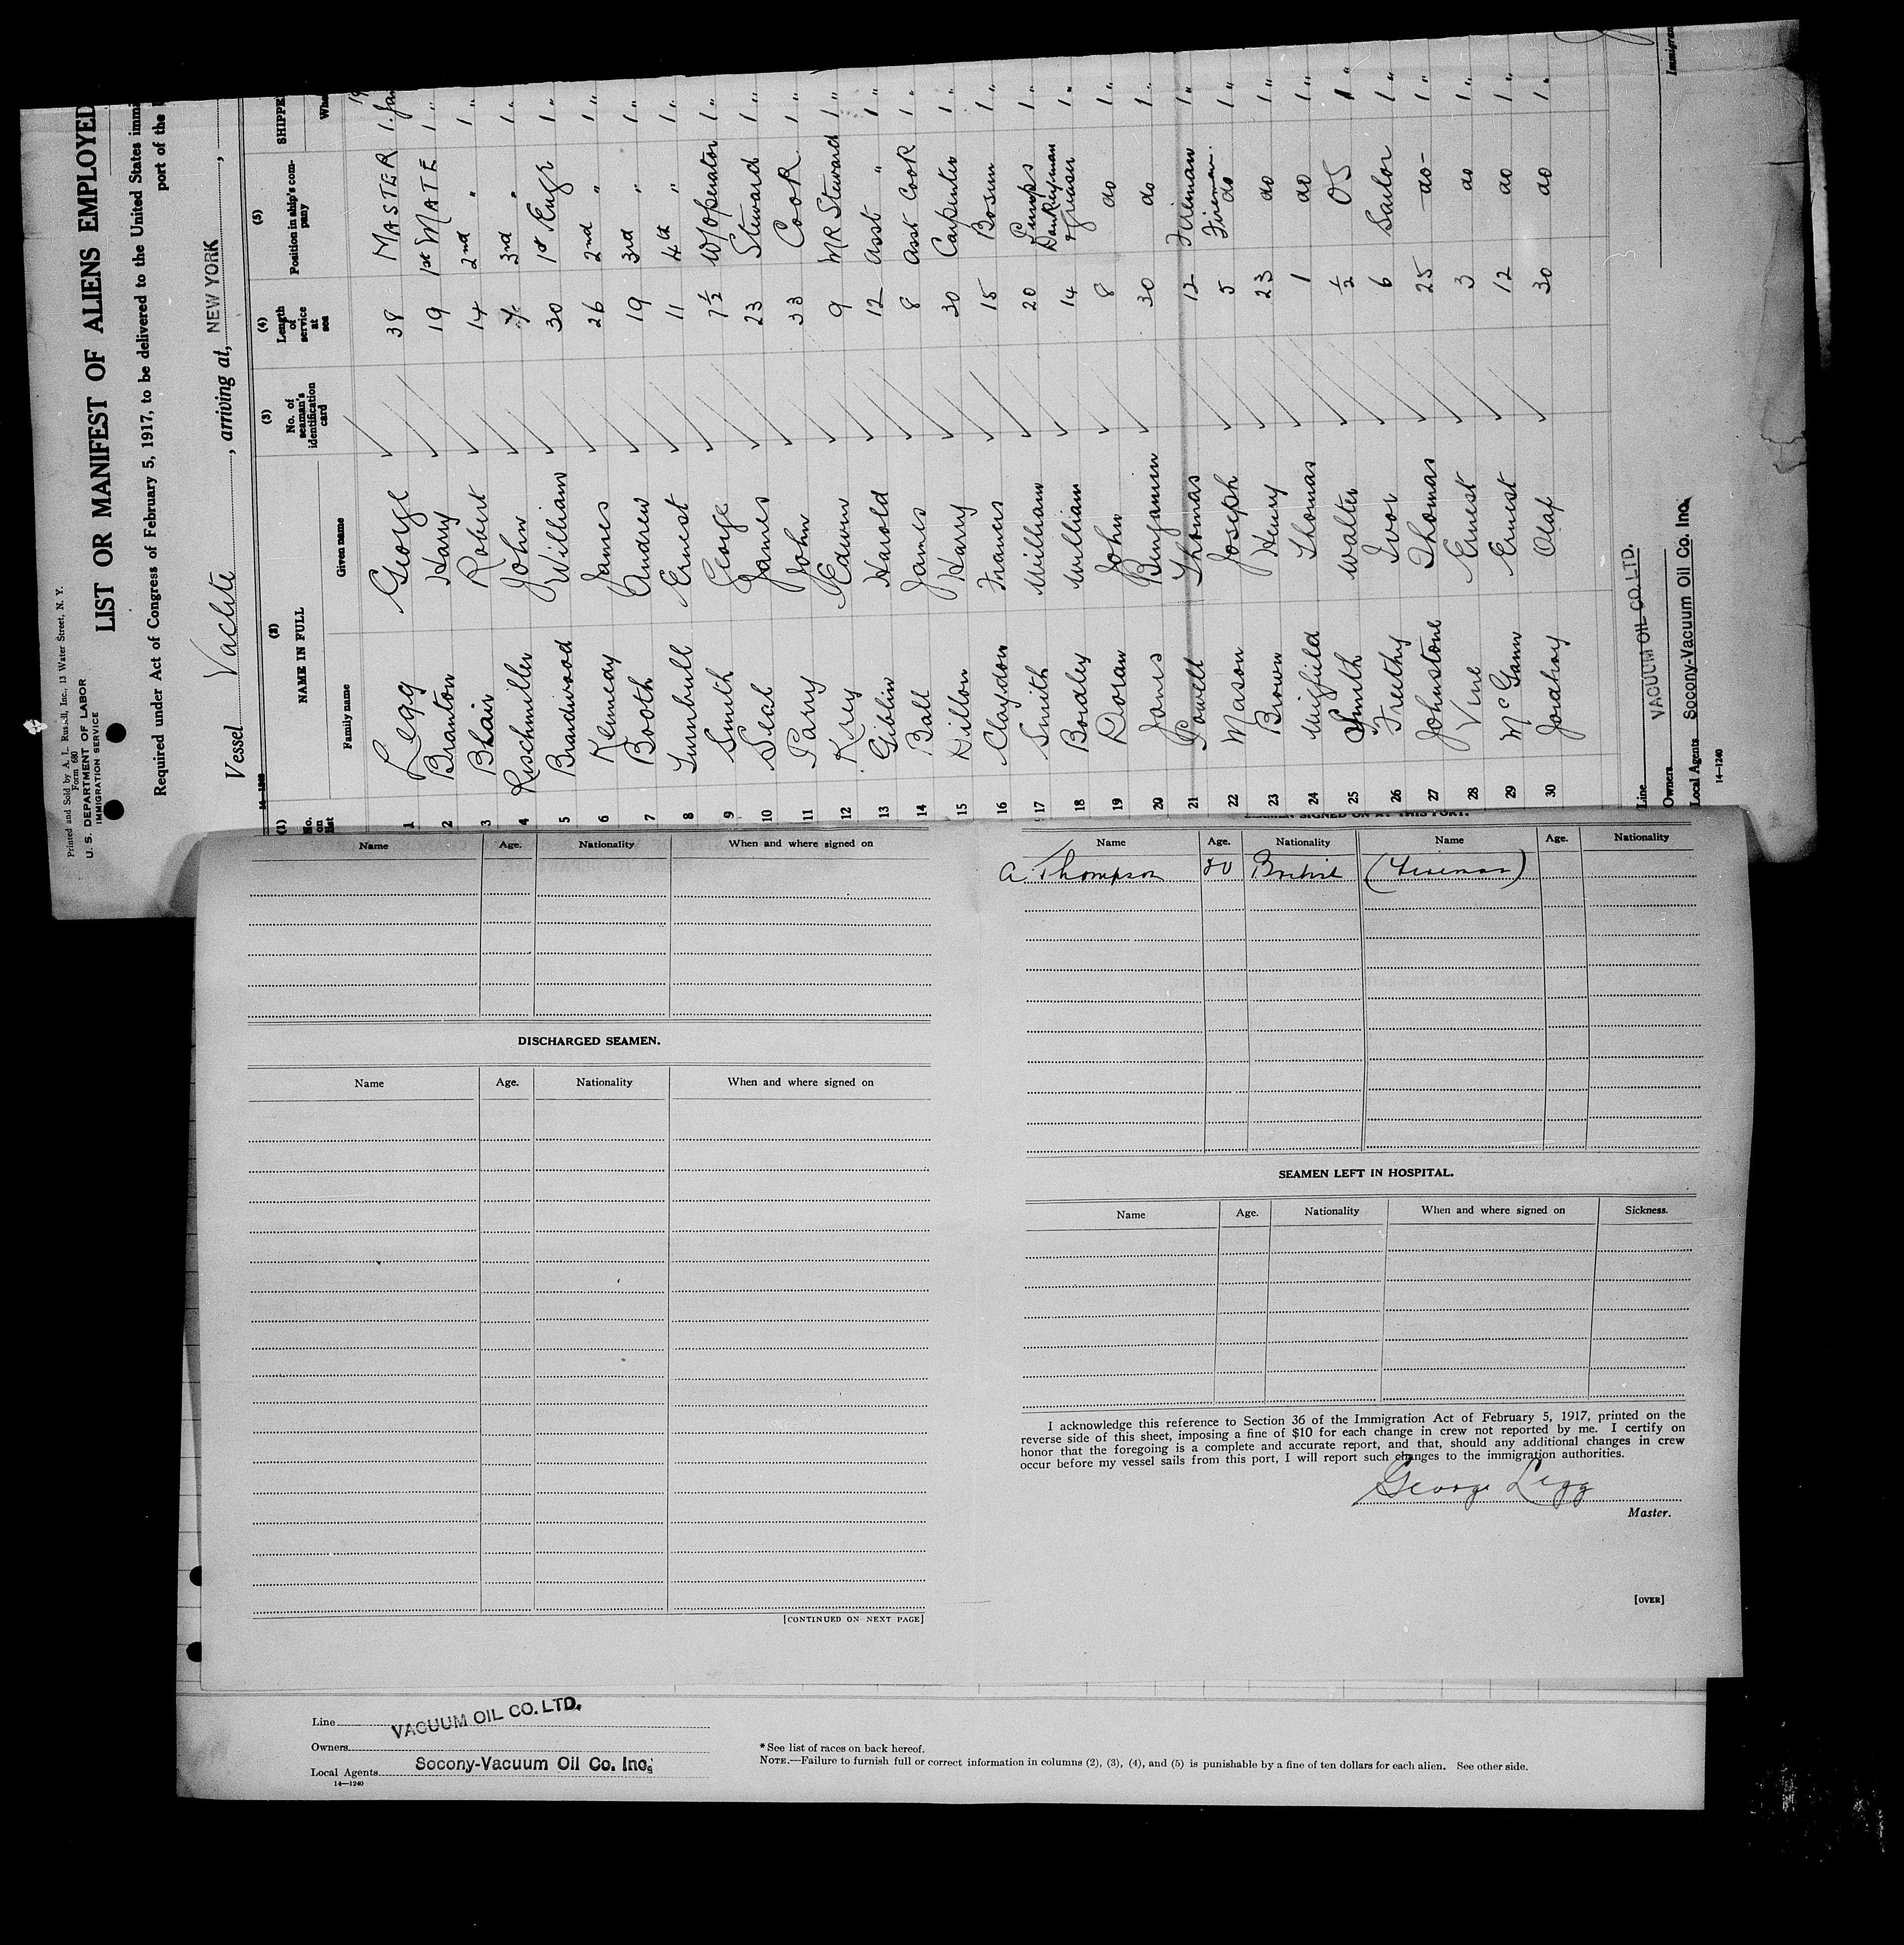 Printed and Sold by A. L. Russell, Inc., 13 Water Street, N. Y.
Form 680
U. S. DEPARTMENT OF LABOR
IMMIGRATION SERVICE
LIST OR MANIFEST OF ALIENS EMPLOYED
Required under Act of Congress of February 5, 1917, to be delivered to the United States immi
port of the
Vessel Vaclite, arriving at, NEW YORK,
14-1240
(1) (2) (3) (4) (5)
No. on list NAME IN FULL No. of seaman's identification card Length of service at sea Position in ship's company SHIPPE
Family name Given name Whe
1 Legg George 38 MASTER 1. Jan
2 Branton Harry 19 1st MATE 1 "
3 Blair Robert 14 2nd " 1 "
4 Rischmiller John 3rd " 1 "
5 Brandwood William 30 1st Enge 1 "
6 Kennedy James 26 2nd " 1 "
7 Booth Andrew 19 3rd " 1 "
8 Turnbull Ernest 11 4th " 1 "
9 Smith George 7½ W/Operator 1 "
10 Seal James 23 Steward 1 "
11 Parry John 33 Cook 1 "
12 Edwin 9 MR Steward 1 "
13 Giblin Harold 12 Asst " 1 "
14 Ball James 8 Asst Cook 1 "
15 Dillon Harry 30 Carpenter 1 "
16 Claydon Francis 15 Bosun 1 "
17 Smith William 20 Pumps 1 "
18 Bordley William 14 Donkeyman & greaser 1 "
19 Doran John 8 do 1 "
20 Jones Benjamin 30 do 1 "
21 Powell Thomas 12 Fireman 1 "
22 Mason Joseph 5 Fireman do 1 "
23 Brown Henry 23 do 1 "
24 Wigfield Thomas 1 do 1 "
25 Smith Walter ½ OS 1 "
26 Freethy Ivor 6 Sailor 1 "
27 Johnstone Thomas 25 -do- 1 "
28 Vine Ernest 3 do 1 "
29 McGann Ernest 12 do 1 "
30 Jordhoy Olaf 30 do 1 "
Line VACUUM OIL CO. LTD.
Owners
Local Agents Socony-Vacuum Oil Co. Inc.
14-1240
Immigran
Name Age. Nationality When and where signed on
DISCHARGED SEAMEN.
Name Age. Nationality When and where signed on
[CONTINUED ON NEXT PAGE]
SEAMEN SIGNED ON AT THIS PORT.
Name Age. Nationality Name Age. Nationality
A. Thompson British (Fireman)
SEAMEN LEFT IN HOSPITAL.
Name Age. Nationality When and where signed on Sickness.
I acknowledge this reference to Section 36 of the Immigration Act of February 5, 1917, printed on the
reverse side of this sheet, imposing a fine of $10 for each change in crew not reported by me. I certify on
honor that the foregoing is a complete and accurate report, and that, should any additional changes in crew
occur before my vessel sails from this port, I will report such changes to the immigration authorities.
George Legg
Master.
[OVER]
Line VACUUM OIL CO. LTD.
Owners
Local Agents Socony-Vacuum Oil Co. Inc.
14—1240
*See list of races on back hereof.
NOTE.—Failure to furnish full or correct information in columns (2), (3), (4), and (5) is punishable by a fine of ten dollars for each alien. See other side.